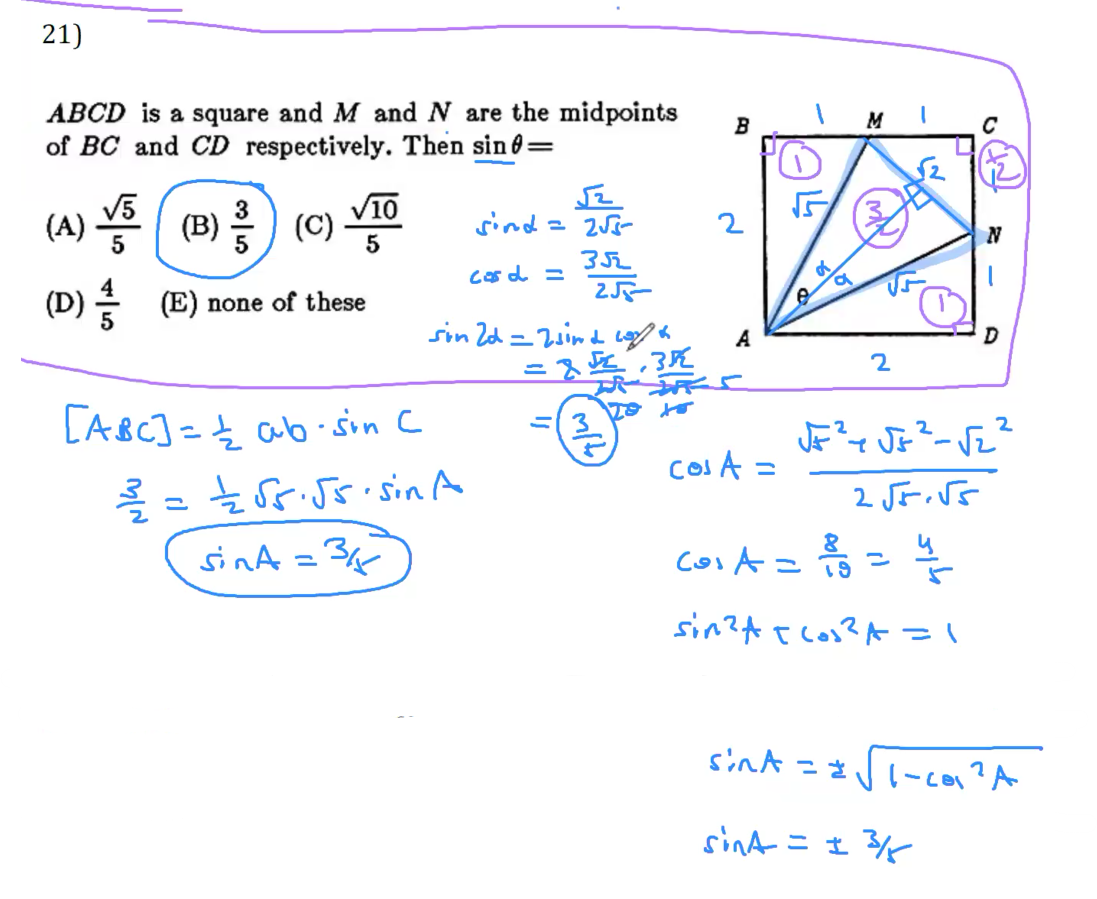 21)
ABCD is a square and M and N are the midpoints
of BC and CD respectively. Then sin θ =
(A) √5/5 (B) 3/5 (C) √10/5
(D) 4/5 (E) none of these
B 1 M 1 C
1 1/2
√2 1
2 √5 3/2 N
α α
θ √5 1 1
A 2 D
sin α = √2/2√5
cos α = 3√2/2√5
sin 2α = 2 sin α cos α
= 2 √2/2√5 · 3√2/2√5 5
20 10
= 3/5
[ABC] = 1/2 ab · sin C
3/2 = 1/2 √5 · √5 · sin A
sin A = 3/5
cos A = √5² + √5² - √2² / 2√5 · √5
cos A = 8/10 = 4/5
sin² A + cos² A = 1
sin A = ± √1 - cos² A
sin A = ± 3/5